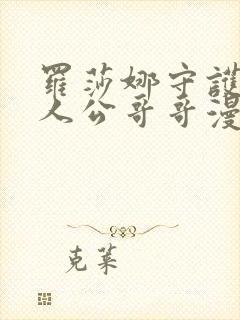 羅莎娜守護
人公哥哥漫
克萊